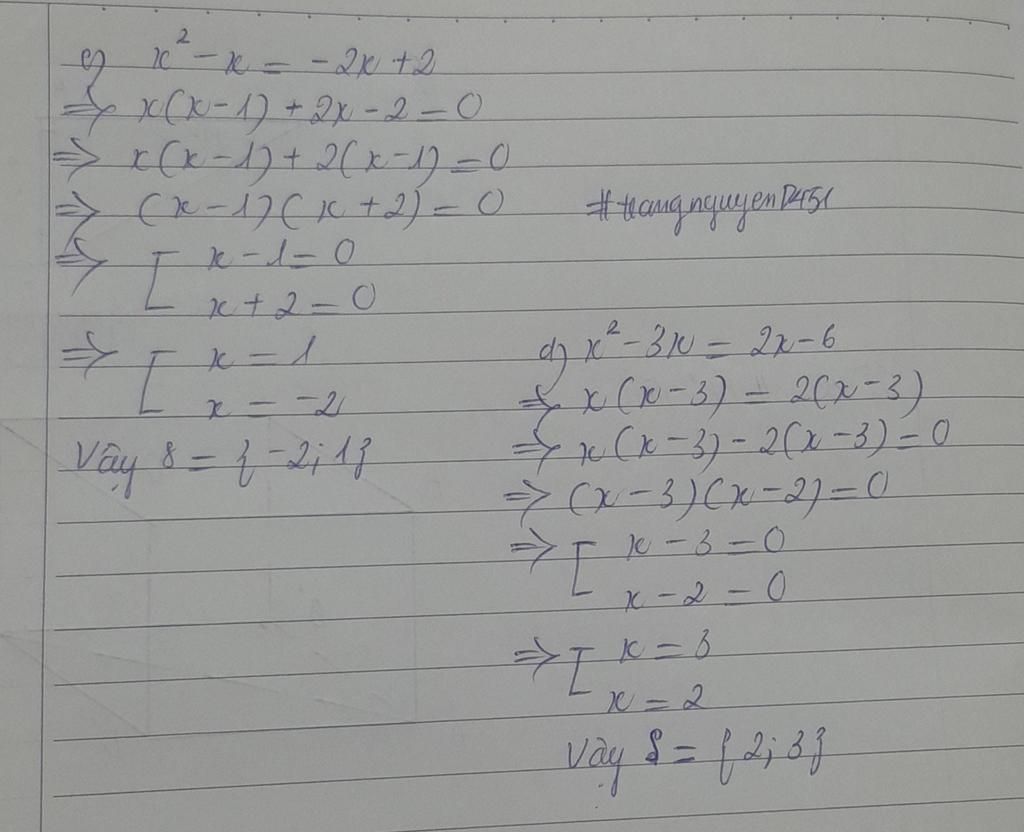 c) x² - x = -2x + 2
=> x(x-1) + 2x - 2 = 0
=> x(x-1) + 2(x-1) = 0
=> (x-1)(x+2) = 0
#trangnguyen17451
=> [ x - 1 = 0
x + 2 = 0
=> [ x = 1
x = -2
Vậy S = {-2; 1}
d) x² - 3x = 2x - 6
=> x(x-3) = 2(x-3)
=> x(x-3) - 2(x-3) = 0
=> (x-3)(x-2) = 0
=> [ x - 3 = 0
x - 2 = 0
=> [ x = 3
x = 2
Vậy S = {2; 3}